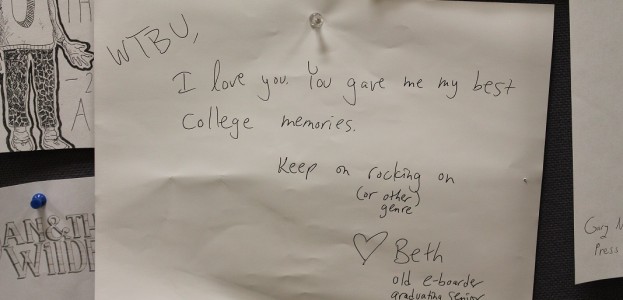 WTBU,
I love you. You gave me my best
College memories.
Keep on rocking on
(or other)
genre
♡ Beth
old e-boarder
graduating senior
TH
-2
A
AN & TH
WILDE
Gary N
Press